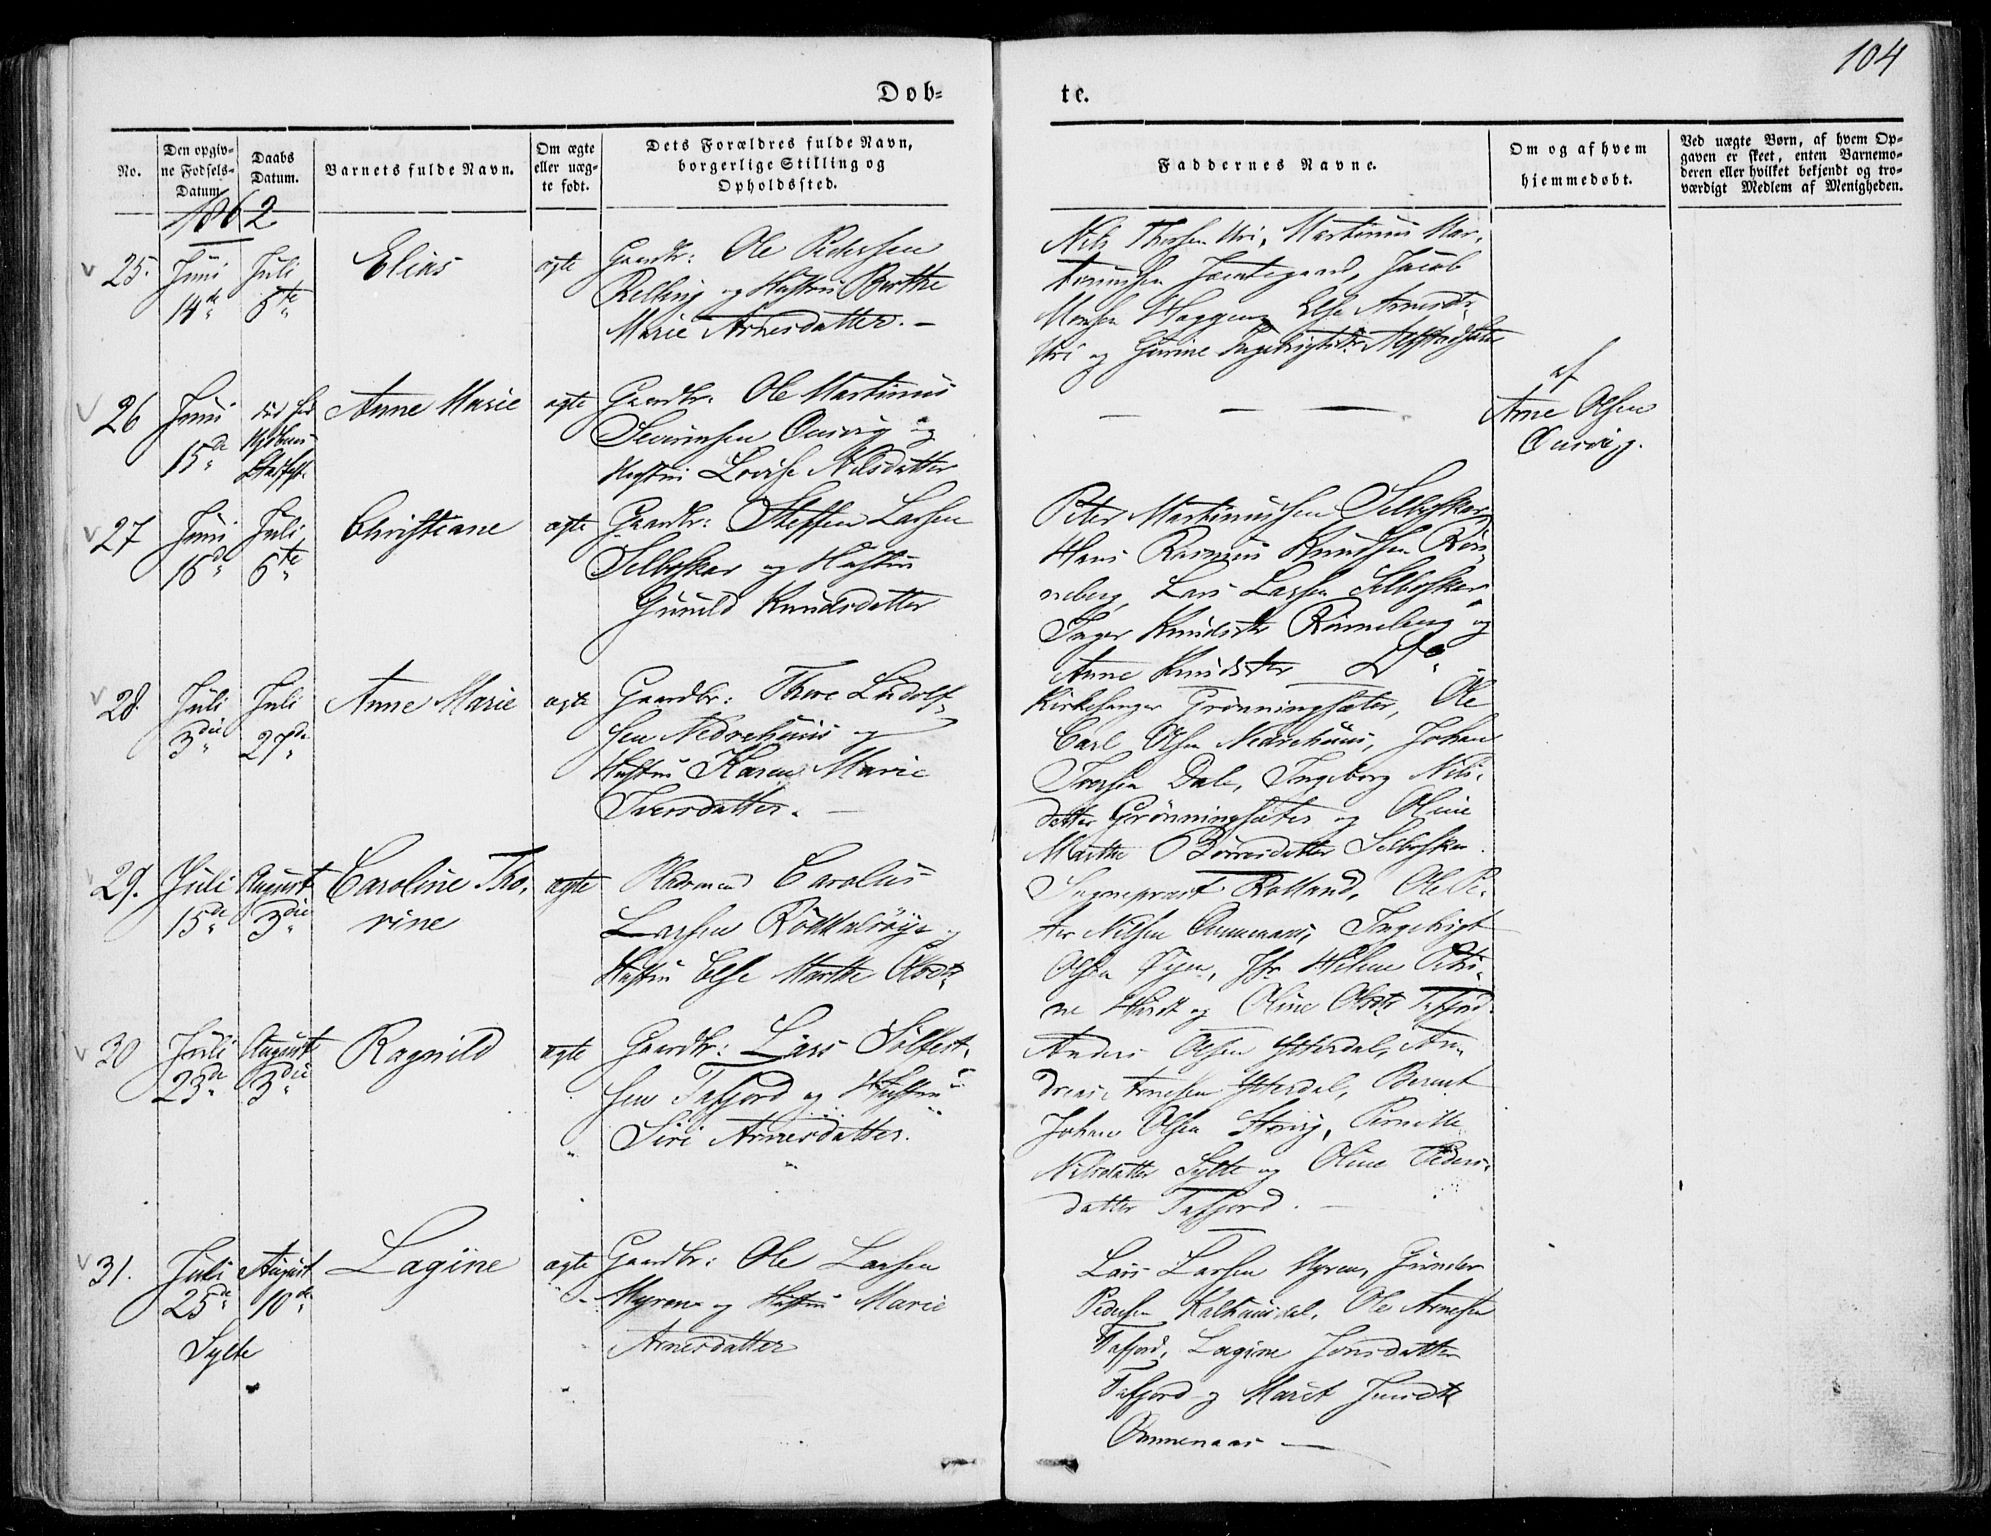 104
Døb-
te.
No.
Den opgiv-
ne Fødsels-
Datum.
Daabs
Datum.
Barnets fulde Navn.
Om ægte
eller uæg-
te født.
Dets Forældres fulde Navn,
borgerlige Stilling og
Opholdssted.
Faddernes Navne.
Om og af hvem
hjemmedøbt.
Ved uægte Børn, af hvem Op-
gaven er skeet, enten Barnemo-
deren eller hvilket bekjendt og tro-
værdigt Medlem af Menigheden.
1862
25.
Juni
14de
Juli
6te
Elias
ægte
Gaardbr: Ole Pedersen
Relling og Hustru Berthe
Marie Arnesdatter. -
Nils Thorsen Uri, Martinus Mar-
tinussen Jemtegaard, Jacob
Monsen Hoggen, Else Arnesdtr
Uri og Gurine Ingebrigtsdtr
26
Juni
15de
Anne Marie
ægte
Gaardbr. Ole Martinus
Severinsen Overvig og
Hustru Lovise Nilsdatter
— — —
af
Arne Olsen
Overvig.
27
Juni
16de
Juli
6te
Christiane
ægte
Gaardbr: Steffen Larsen
Selboskar og Hustru
Gunild Knudsdatter
Peter Martinussen Selboskar,
Hans Rasmus Knudsen Røn-
neberg, Lars Larsen Selboskar,
Inger Knudsdtr Rønneberg og
Anne Knudsdtr Do
28.
Juli
3die
Juli
27de
Anne Marie
ægte
Gaardbr: Thore Ludolf-
sen Nedrehuus og
Hustru Karen Marie
Iversdatter. —
Kirkesanger Grønningsæter, Ole
Carl Olsen Nedrehuus, Johan
Iversen Dale, Ingeborg Nils-
datter Grønningsæter og Oline
Marthe Børresdatter Selboskar.
29.
Juli
15de
August
3die
Caroline Tho-
rine
ægte
Carolus
Larsen og
Hustru Else Marthe Olsdtr
Sognepræst Rolland, Ole Pe-
ter Nilsen Ommenaas, Ingebrigt
Olsen Øyen, Jfr. Helene Petri-
ne og Oline Olsdtr Tafjord.
30
Juli
23de
August
3die
Ragnild
ægte
Gaardbr: Lars Sølfest-
sen Tafjord og Hustru
Siri Arnesdatter.
Anders Olsen Ytterdal, An-
dreas Arnesen Ytterdal, Berent
Johan Olsen Hovig, Pernille
Nilsdatter Sylte og Oline Peders-
datter Tafjord. —
31.
Juli
25de
Sylte
August
10de
Lagine
ægte
Gaardbr: Ole Larsen
Myren og Hustru Marie
Arnesdatter
Lars Larsen Myren, Gunder
Pedersen Kaldhusdal, Ole Arnesen
Tafjord, Lagine Jonsdatter
Tafjord og Maret Jensdtr
Ommenaas —